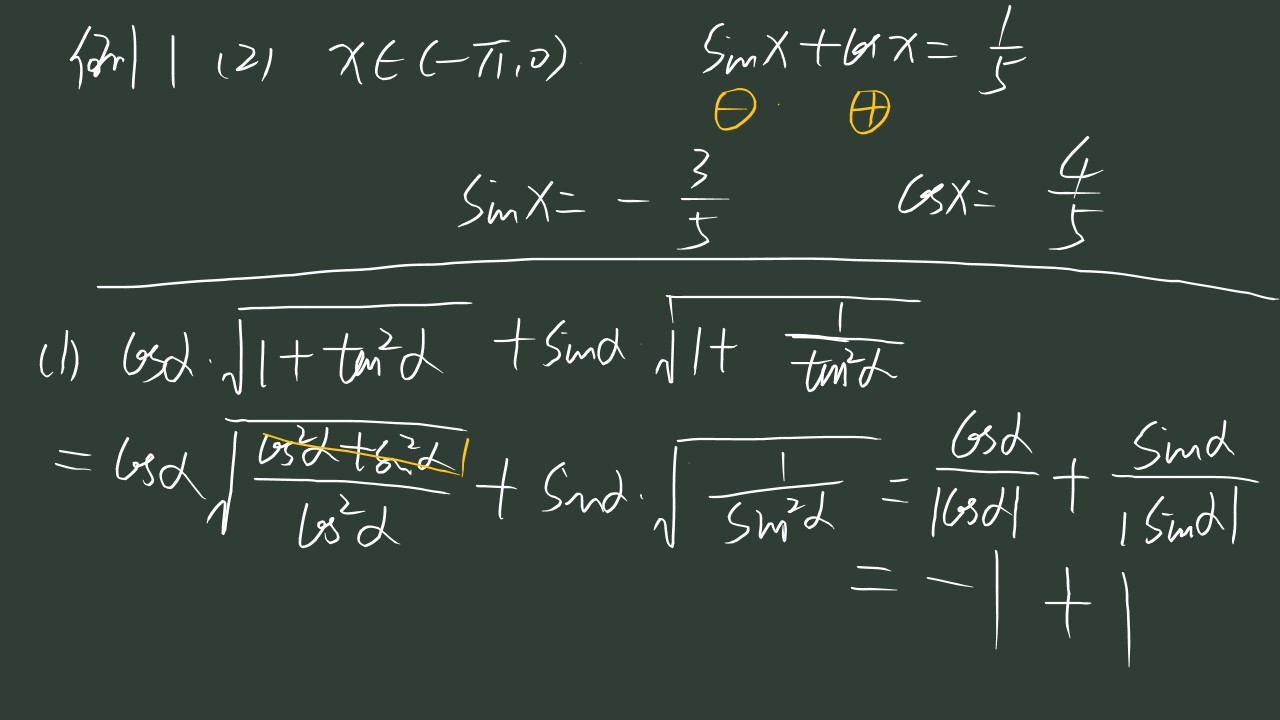 例1 (2) x∈(-π,0) sinx+cosx=1/5
⊖ ⊕
sinx=-3/5 cosx=4/5
(1) cosα·√(1+tan²α) +sinα·√(1+1/tan²α)
=cosα√((cos²α+sin²α)/cos²α) + sinα·√(1/sin²α) = cosα/|cosα| + sinα/|sinα|
= -1 + 1